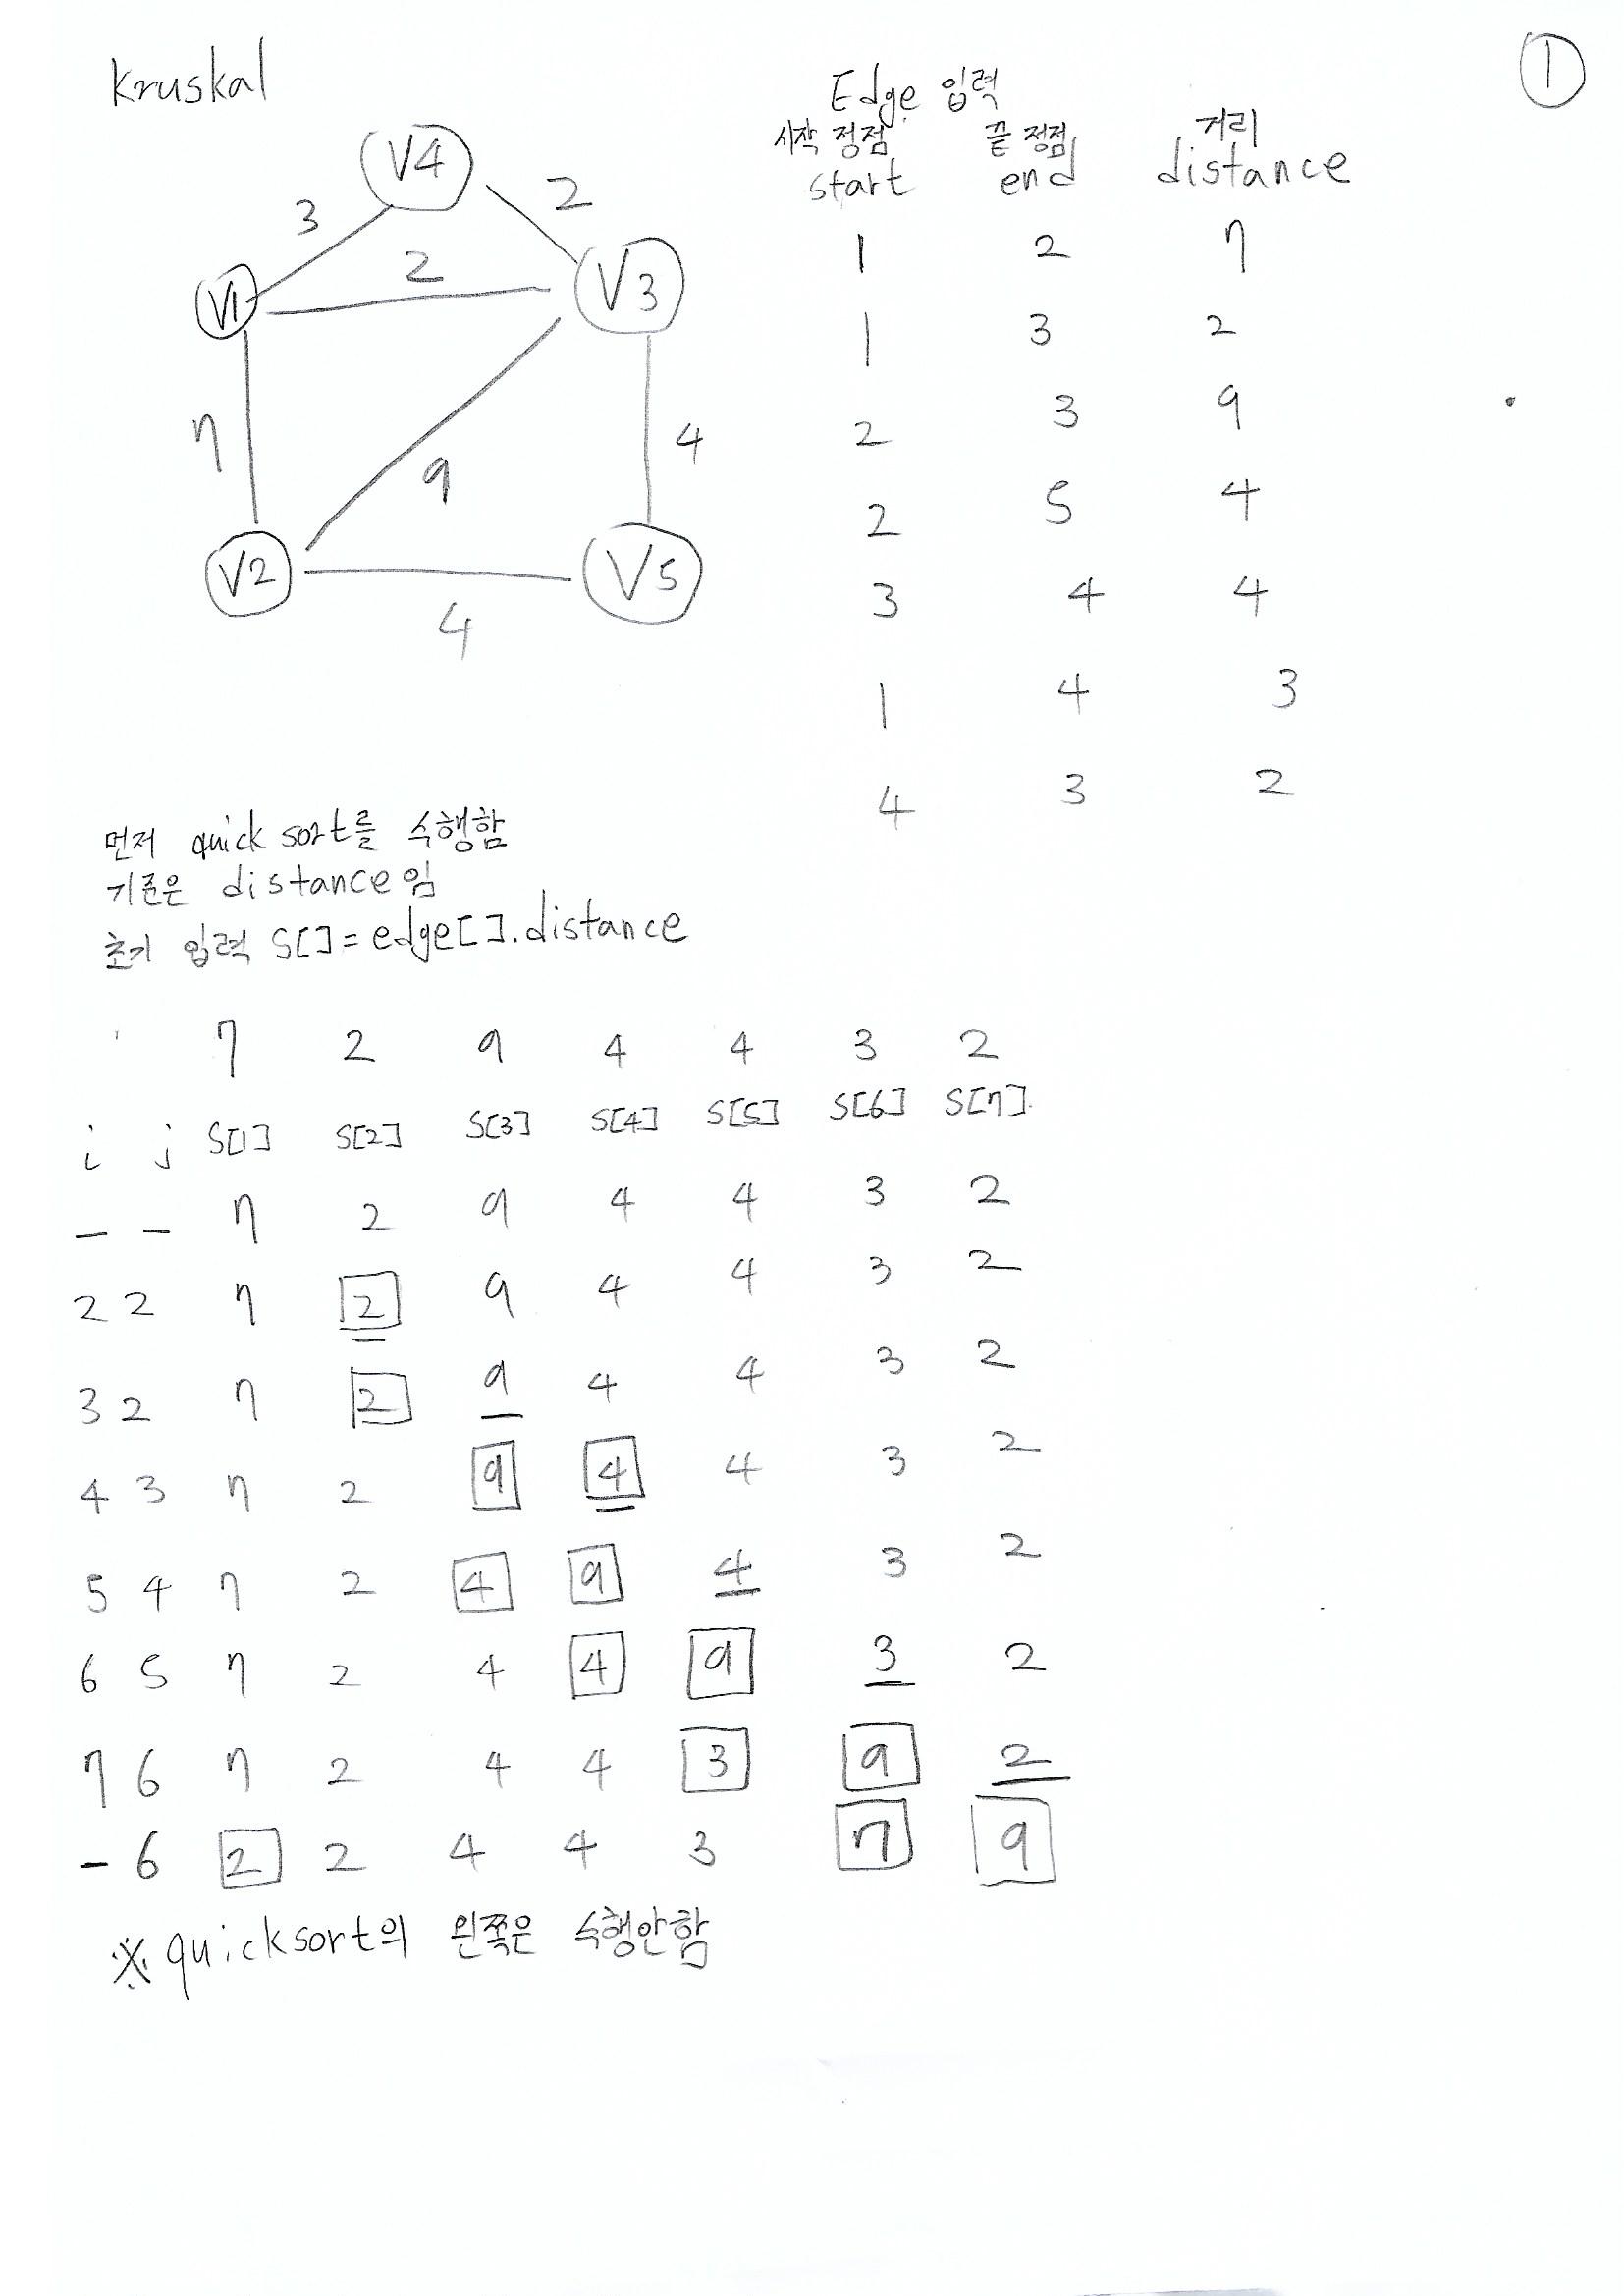 Kruskal
①
V4
3
2
2
V1
V3
7
9
4
V2
V5
4
Edge 입력
시작 정점 끝 정점 거리
start end distance
1 2 7
1 3 2
2 3 9
2 5 4
3 4 4
1 4 3
4 3 2
먼저 quick sort를 수행함
기준은 distance임
초기 입력 S[]=edge[].distance
7 2 9 4 4 3 2
i j S[1] S[2] S[3] S[4] S[5] S[6] S[7]
- - 7 2 9 4 4 3 2
2 2 7 2 9 4 4 3 2
3 2 7 2 9 4 4 3 2
4 3 7 2 9 4 4 3 2
5 4 7 2 4 9 4 3 2
6 5 7 2 4 4 9 3 2
7 6 7 2 4 4 3 9 2
- 6 2 2 4 4 3 7 9
※ quicksort의 왼쪽은 수행안함